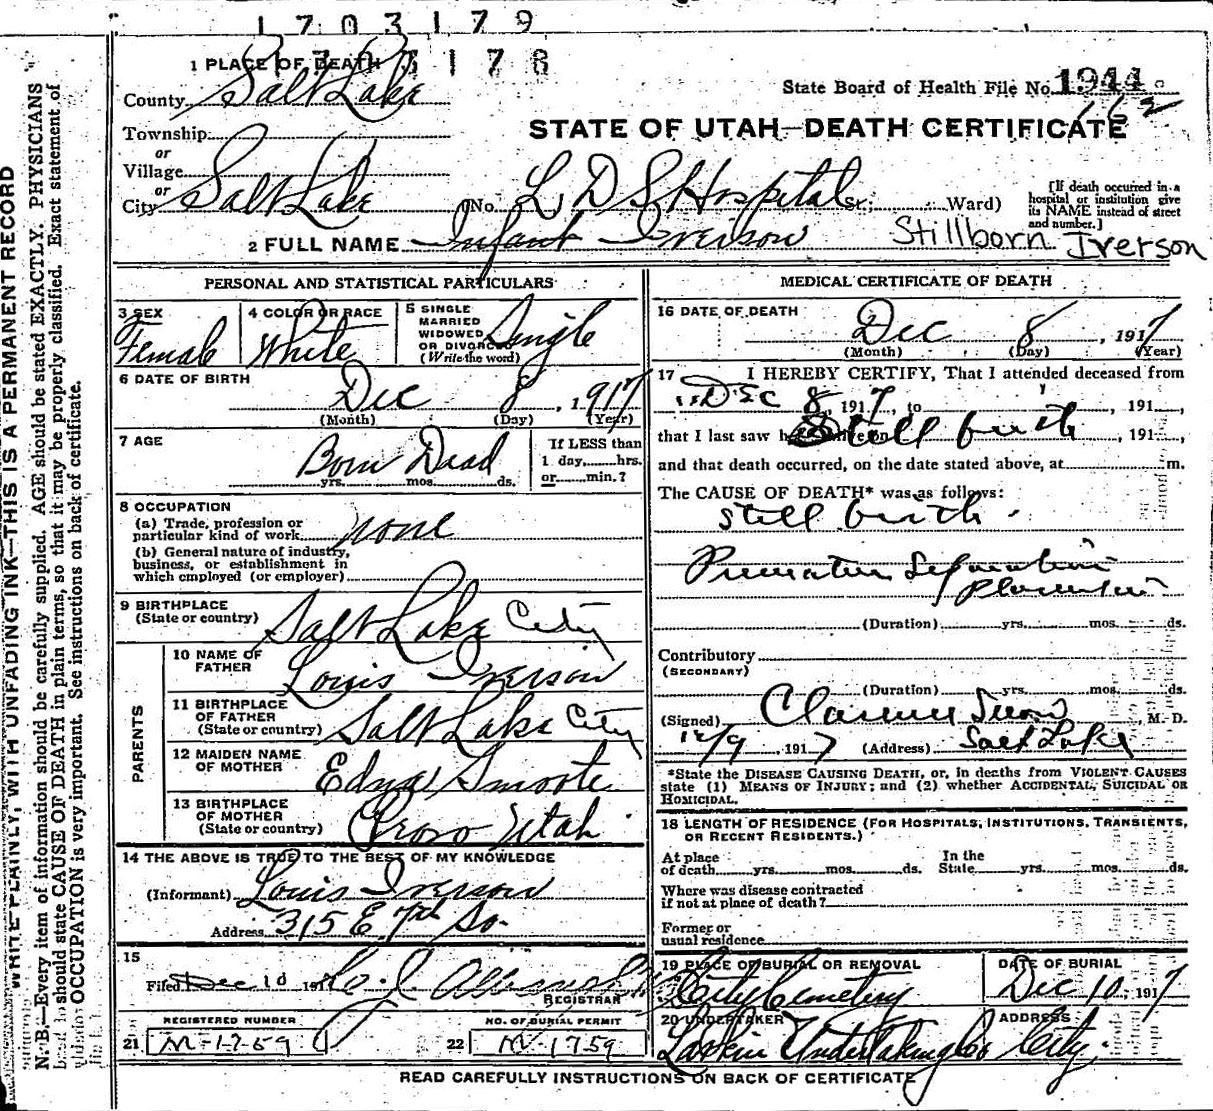 1703179
1 PLACE OF DEATH 1703178
County Salt Lake
State Board of Health File No. 1944
162
STATE OF UTAH—DEATH CERTIFICATE
Township
or
Village
or
City Salt Lake (No. L D S Hospital St.; Ward)
[If death occurred in a hospital or institution give its NAME instead of street and number.]
2 FULL NAME Infant Iverson Stillborn Iverson
PERSONAL AND STATISTICAL PARTICULARS
3 SEX
Female
4 COLOR OR RACE
White
5 SINGLE
MARRIED
WIDOWED
OR DIVORCED
(Write the word)
Single
6 DATE OF BIRTH
Dec 8, 1917
(Month) (Day) (Year)
7 AGE
Born Dead
yrs. mos. ds.
If LESS than
1 day, hrs.
or min.?
8 OCCUPATION
(a) Trade, profession or
particular kind of work none
(b) General nature of industry,
business, or establishment in
which employed (or employer)
9 BIRTHPLACE
(State or country) Salt Lake City
PARENTS
10 NAME OF
FATHER Louis Iverson
11 BIRTHPLACE
OF FATHER
(State or country) Salt Lake City
12 MAIDEN NAME
OF MOTHER Edna Smoote
13 BIRTHPLACE
OF MOTHER
(State or country) Provo Utah
14 THE ABOVE IS TRUE TO THE BEST OF MY KNOWLEDGE
(Informant) Louis Iverson
Address 315 E 7th So.
15
Filed Dec 10 191
REGISTRAR
REGISTERED NUMBER
21 M-1759
NO. OF BURIAL PERMIT
22 M-1759
MEDICAL CERTIFICATE OF DEATH
16 DATE OF DEATH
Dec 8, 1917
(Month) (Day) (Year)
17 I HEREBY CERTIFY, That I attended deceased from
Dec 8, 1917, to , 191 ,
that I last saw h alive on Still birth , 191 ,
and that death occurred, on the date stated above, at m.
The CAUSE OF DEATH* was as follows:
Still birth.
Premature Separation
Placenta
(Duration) yrs. mos. ds.
Contributory
(SECONDARY)
(Duration) yrs. mos. ds.
(Signed) Clarence Snow, M. D.
12/9, 1917 (Address) Salt Lake
*State the DISEASE CAUSING DEATH, or, in deaths from VIOLENT CAUSES
state (1) MEANS OF INJURY; and (2) whether ACCIDENTAL, SUICIDAL OR
HOMICIDAL.
18 LENGTH OF RESIDENCE (FOR HOSPITALS, INSTITUTIONS, TRANSIENTS,
OR RECENT RESIDENTS.)
At place
of death yrs. mos. ds.
In the
State yrs. mos. ds.
Where was disease contracted
if not at place of death?
Former or
usual residence
19 PLACE OF BURIAL OR REMOVAL
City Cemetery
DATE OF BURIAL
Dec 10, 1917
20 UNDERTAKER
Larkin Undertaking Co
ADDRESS
City.
READ CAREFULLY INSTRUCTIONS ON BACK OF CERTIFICATE
WRITE PLAINLY, WITH UNFADING INK—THIS IS A PERMANENT RECORD
N. B.—Every item of information should be carefully supplied. AGE should be stated EXACTLY. PHYSICIANS
should state CAUSE OF DEATH in plain terms, so that it may be properly classified. Exact statement of
OCCUPATION is very important. See instructions on back of certificate.